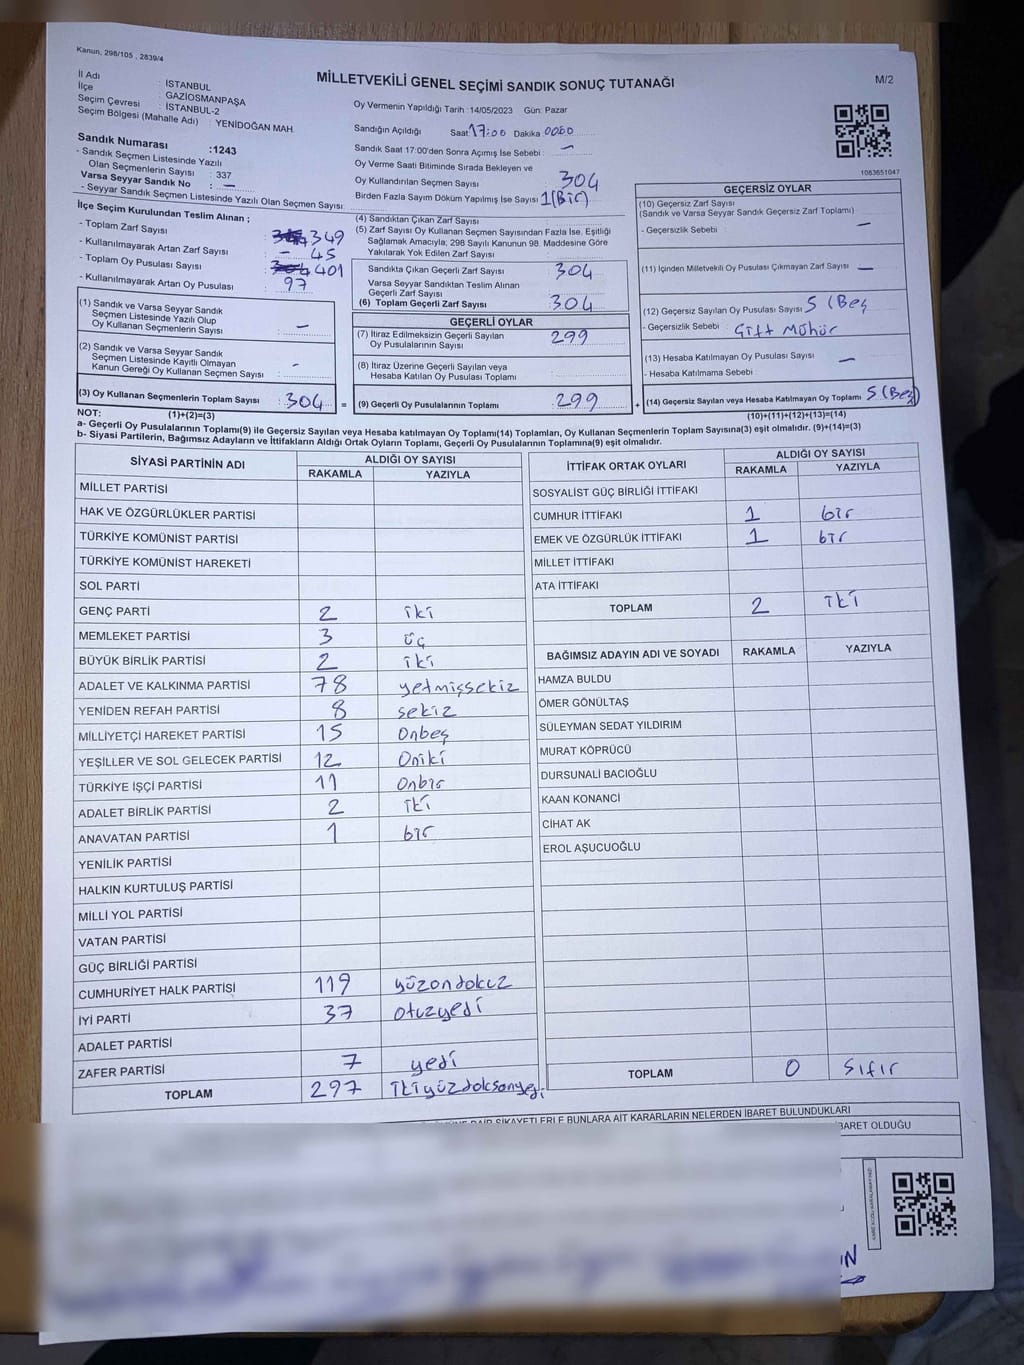 Kanun, 298/105 , 2839/4
MİLLETVEKİLİ GENEL SEÇİMİ SANDIK SONUÇ TUTANAĞI
M/2
İl Adı : İSTANBUL
İlçe : GAZİOSMANPAŞA
Seçim Çevresi : İSTANBUL-2
Seçim Bölgesi (Mahalle Adı) : YENİDOĞAN MAH.
Oy Vermenin Yapıldığı Tarih :14/05/2023 Gün: Pazar
Sandığın Açıldığı Saat 17:00 Dakika 00:00
Sandık Saat 17:00'den Sonra Açımış İse Sebebi : —
Oy Verme Saati Bitiminde Sırada Bekleyen ve
Oy Kullandırılan Seçmen Sayısı 304
Birden Fazla Sayım Döküm Yapılmış İse Sayısı 1(Bir)
1083651047
Sandık Numarası :1243
- Sandık Seçmen Listesinde Yazılı
Olan Seçmenlerin Sayısı : 337
Varsa Seyyar Sandık No : —
- Seyyar Sandık Seçmen Listesinde Yazılı Olan Seçmen Sayısı:
İlçe Seçim Kurulundan Teslim Alınan ;
- Toplam Zarf Sayısı : 349
- Kullanılmayarak Artan Zarf Sayısı : 45
- Toplam Oy Pusulası Sayısı : 401
- Kullanılmayarak Artan Oy Pusulası : 97
(1) Sandık ve Varsa Seyyar Sandık
Seçmen Listesinde Yazılı Olup
Oy Kullanan Seçmenlerin Sayısı : —
(2) Sandık ve Varsa Seyyar Sandık
Seçmen Listesinde Kayıtlı Olmayan
Kanun Gereği Oy Kullanan Seçmen Sayısı : -
(3) Oy Kullanan Seçmenlerin Toplam Sayısı : 304 =
(4) Sandıktan Çıkan Zarf Sayısı
(5) Zarf Sayısı Oy Kullanan Seçmen Sayısından Fazla İse, Eşitliği
Sağlamak Amacıyla; 298 Sayılı Kanunun 98. Maddesine Göre
Yakılarak Yok Edilen Zarf Sayısı :
Sandıkta Çıkan Geçerli Zarf Sayısı : 304
Varsa Seyyar Sandıktan Teslim Alınan
Geçerli Zarf Sayısı :
(6) Toplam Geçerli Zarf Sayısı : 304
GEÇERLİ OYLAR
(7) İtiraz Edilmeksizin Geçerli Sayılan
Oy Pusulalarının Sayısı : 299
(8) İtiraz Üzerine Geçerli Sayılan veya
Hesaba Katılan Oy Pusulası Toplamı :
(9) Geçerli Oy Pusulalarının Toplamı : 299 +
GEÇERSİZ OYLAR
(10) Geçersiz Zarf Sayısı
(Sandık ve Varsa Seyyar Sandık Geçersiz Zarf Toplamı)
- Geçersizlik Sebebi : —
(11) İçinden Milletvekili Oy Pusulası Çıkmayan Zarf Sayısı —
(12) Geçersiz Sayılan Oy Pusulası Sayısı 5 (Beş
- Geçersizlik Sebebi : Çift Mühür
(13) Hesaba Katılmayan Oy Pusulası Sayısı —
- Hesaba Katılmama Sebebi :
(14) Geçersiz Sayılan veya Hesaba Katılmayan Oy Toplamı 5 (Beş)
NOT: (1)+(2)=(3)
(10)+(11)+(12)+(13)=(14)
a- Geçerli Oy Pusulalarının Toplamı(9) ile Geçersiz Sayılan veya Hesaba katılmayan Oy Toplamı(14) Toplamları, Oy Kullanan Seçmenlerin Toplam Sayısına(3) eşit olmalıdır. (9)+(14)=(3)
b- Siyasi Partilerin, Bağımsız Adayların ve İttifakların Aldığı Ortak Oyların Toplamı, Geçerli Oy Pusulalarının Toplamına(9) eşit olmalıdır.
SİYASİ PARTİNİN ADI ALDIĞI OY SAYISI
RAKAMLA YAZIYLA
MİLLET PARTİSİ
HAK VE ÖZGÜRLÜKLER PARTİSİ
TÜRKİYE KOMÜNİST PARTİSİ
TÜRKİYE KOMÜNİST HAREKETİ
SOL PARTİ
GENÇ PARTİ 2 iki
MEMLEKET PARTİSİ 3 üç
BÜYÜK BİRLİK PARTİSİ 2 iki
ADALET VE KALKINMA PARTİSİ 78 yetmişsekiz
YENİDEN REFAH PARTİSİ 8 sekiz
MİLLİYETÇİ HAREKET PARTİSİ 15 Onbeş
YEŞİLLER VE SOL GELECEK PARTİSİ 12 Oniki
TÜRKİYE İŞÇİ PARTİSİ 11 Onbir
ADALET BİRLİK PARTİSİ 2 iki
ANAVATAN PARTİSİ 1 bir
YENİLİK PARTİSİ
HALKIN KURTULUŞ PARTİSİ
MİLLİ YOL PARTİSİ
VATAN PARTİSİ
GÜÇ BİRLİĞİ PARTİSİ
CUMHURİYET HALK PARTİSİ 119 yüzondokuz
İYİ PARTİ 37 otuzyedi
ADALET PARTİSİ
ZAFER PARTİSİ 7 yedi
TOPLAM 297 ikiyüzdoksanyedi
İTTİFAK ORTAK OYLARI ALDIĞI OY SAYISI
RAKAMLA YAZIYLA
SOSYALİST GÜÇ BİRLİĞİ İTTİFAKI
CUMHUR İTTİFAKI 1 bir
EMEK VE ÖZGÜRLÜK İTTİFAKI 1 bir
MİLLET İTTİFAKI
ATA İTTİFAKI
TOPLAM 2 iki
BAĞIMSIZ ADAYIN ADI VE SOYADI RAKAMLA YAZIYLA
HAMZA BULDU
ÖMER GÖNÜLTAŞ
SÜLEYMAN SEDAT YILDIRIM
MURAT KÖPRÜCÜ
DURSUNALİ BACIOĞLU
KAAN KONANCİ
CİHAT AK
EROL AŞUCUOĞLU
TOPLAM 0 Sıfır
ŞİKAYETLERLE BUNLARA AİT KARARLARIN NELERDEN İBARET BULUNDUKLARI
BARET OLDUĞU